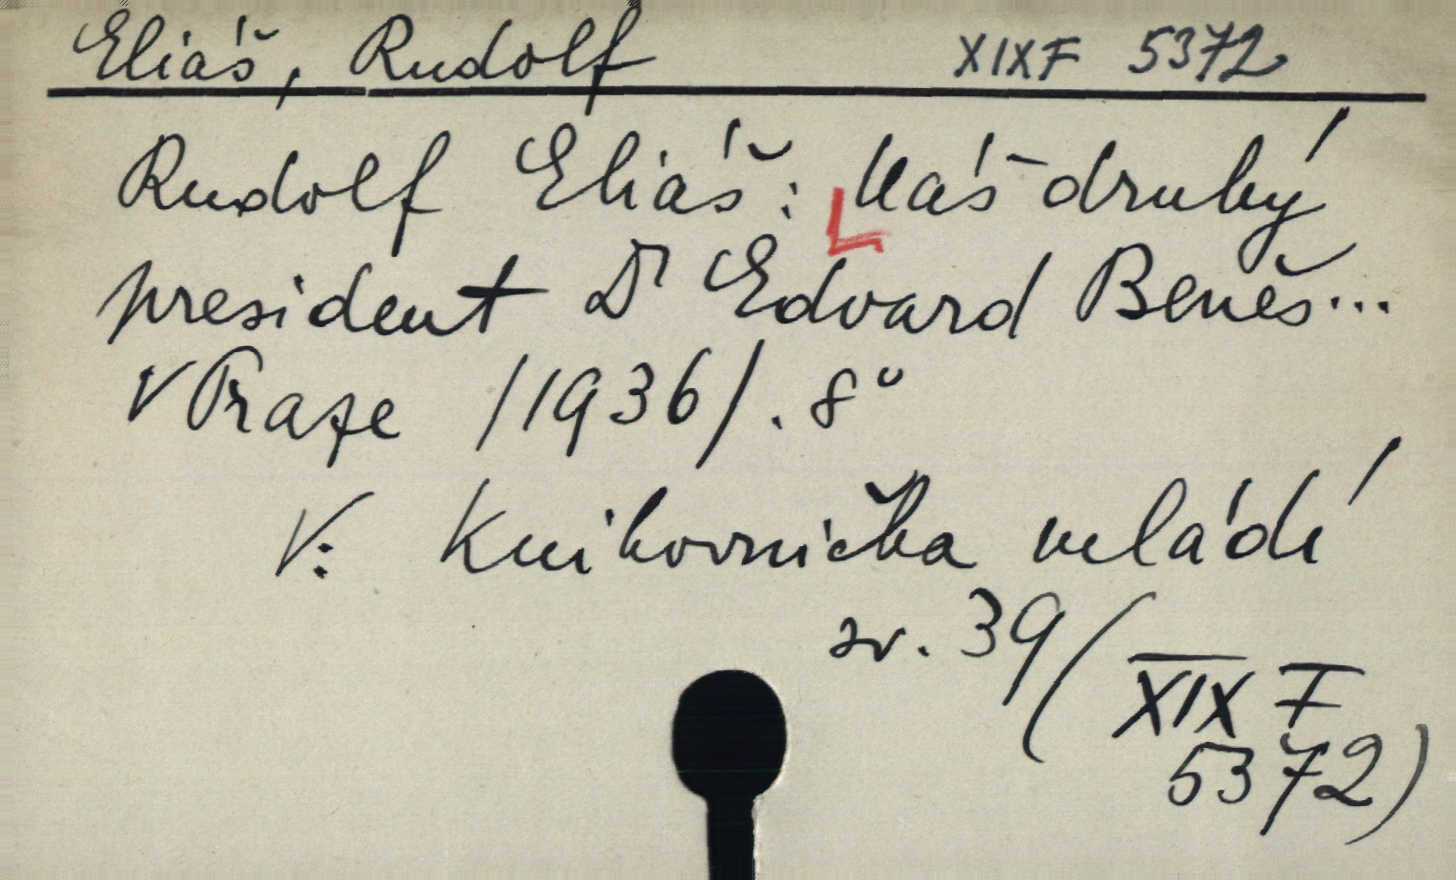 Eliáš, Rudolf XIXF 5372
Rudolf Eliáš: Náš druhý
president Dr Edvard Beneš...
V Praze /1936/. 8°
V: Knihovnička mládí
sv. 39 (XIX F
5372)